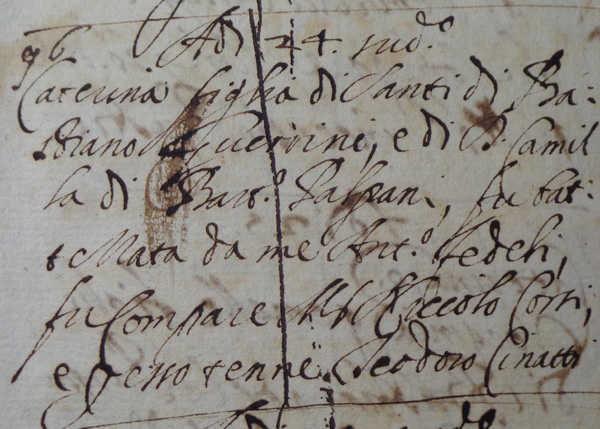 96 Adi 24. sud.º
Caterina figlia di Santi di Ba-
stiano Guerrini, e di D. Camil
la di Bart.º , fu bat:
tezzata da me Ant.º Fedeli,
fu Compare Niccolo Corsi,
e p esso tenne Teodoro Cinatti